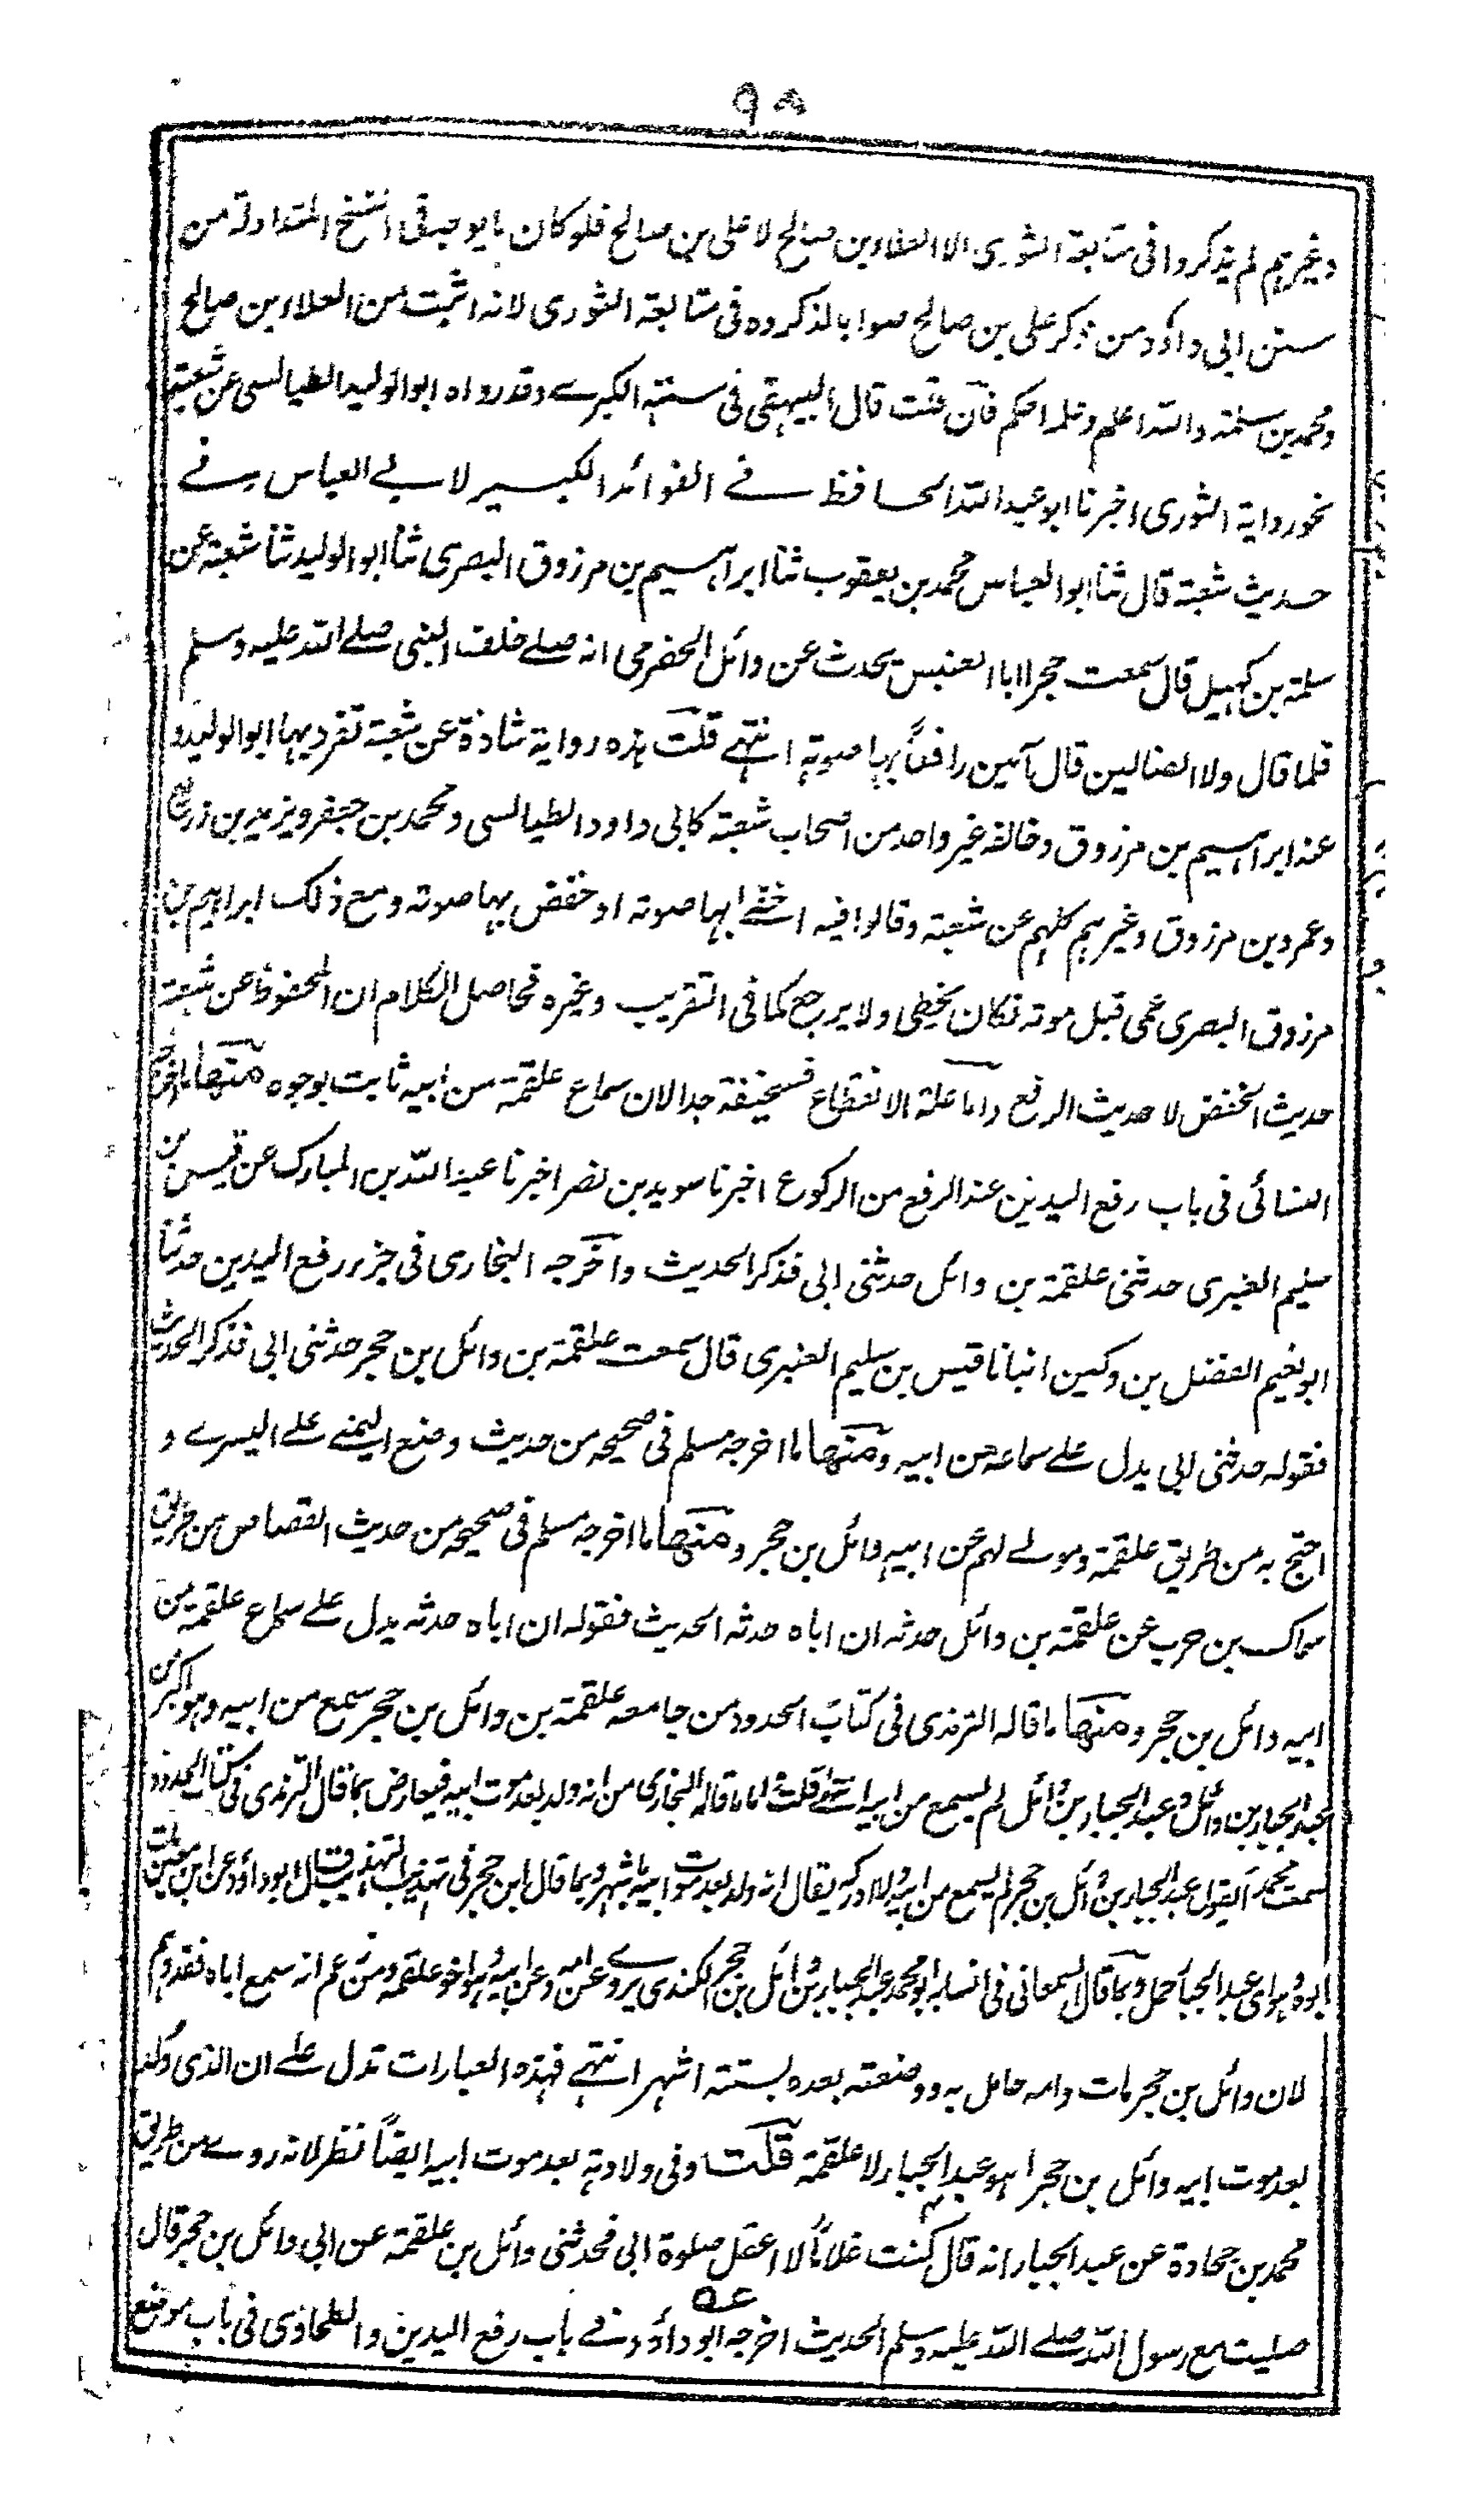 ٩٨
وغيرهم لم يذكروا فى متابعة الثورى الا العلاء بن صالح لا على بن صالح فلو كان ما يوجد فى النسخ المتداولة من
سنن ابى داؤد من ذكر على بن صالح صوابا لذكروه فى متابعة الثورى لانه اثبت من العلاء بن صالح
ومحمد بن سلمة والله اعلم وعلمه احكم فان قلت قال البيهقى فى سننه الكبرے وقد رواه ابو الوليد الطيالسى عن شعبة
نحو رواية الثورى اخبرنا ابو عبد الله الحافظ فے الفوائد الكبير لابے العباس فے
حديث شعبة قال ثنا ابو العباس محمد بن يعقوب ثنا ابراهيم بن مرزوق البصرى ثنا ابو الوليد ثنا شعبة عن
سلمة بن كهيل قال سمعت حجرا ابا العنبس يحدث عن وائل الحضرمى انه صلے خلف النبى صلے الله عليه وسلم
فلما قال ولا الضالين قال آمين رافعاً بها صوته انتهے قلت هذه رواية شاذة عن شعبة تفرد بها ابو الوليد و
عنه ابراهيم بن مرزوق وخالفه غير واحد من اصحاب شعبة كابى داود الطيالسى ومحمد بن جعفر ويزيد بن زريع
وعمرو بن مرزوق وغيرهم كلهم عن شعبة وقالوا فيه اخفے بها صوته او خفض بها صوته ومع ذلك ابراهيم بن
مرزوق البصرى عمى قبل موته فكان يخطى ولا يرجع كما فى التقريب وغيره فحاصل الكلام ان المحفوظ عن شعبة
حديث الخفض لا حديث الرفع واما علة الانقطاع فسخيفة جدا لان سماع علقمة من ابيه ثابت بوجوه منها ما اخرجه
النسائى فى باب رفع اليدين عند الرفع من الركوع اخبرنا سويد بن نصر اخبرنا عبد الله بن المبارك عن قيس بن
سليم العنبرى حدثنى علقمة بن وائل حدثنى ابى فذكر الحديث واخرجه البخارى فى جزء رفع اليدين حدثنا
ابو نعيم الفضل بن دكين انبانا قيس بن سليم العنبرى قال سمعت علقمة بن وائل بن حجر حدثنى ابى فذكر الحديث
فقوله حدثنى ابى يدل علے سماعه من ابيه ومنها ما اخرجه مسلم فى صحيحه من حديث وضع اليمنے علے اليسرے و
احتج به من طريق علقمة ومولے لهم عن ابيه وائل بن حجر ومنها ما اخرجه مسلم فى صحيحه من حديث القصاص من طريق
سماك بن حرب عن علقمة بن وائل حدثه ان اباه حدثه الحديث فقوله ان اباه حدثه يدل علے سماع علقمة من
ابيه وائل بن حجر ومنها ما قاله الترمذى فى كتاب الحدود من جامعه علقمة بن وائل بن حجر سمع من ابيه وهو اكبر من
عبد الجبار بن وائل وعبد الجبار بن وائل لم يسمع من ابيه انتهے قلت اما ما قاله البخارى من انه ولد بعد موت ابيه فيعارض بما قال الترمذى فى كتاب الحدود
سمعت محمدا يقول عبد الجبار بن وائل بن حجر لم يسمع من ابيه ولا ادركه يقال انه ولد بعد موت ابيه باشهر وبما قال ابن حجر فى تهذيب التهذيب قال ابو داؤد عن ابن معين مات
ابوه وهو اى عبد الجبار حمل وبما قال السمعانى فى انسابه ابو محمد عبد الجبار بن وائل بن حجر الكندى يروے عن امه وعن ابيه وهو اخو علقمة ومن زعم انه سمع اباه فقد وهم
لان وائل بن حجر مات وامه حامل به ووضعته بعده بستة اشهر انتهے فهذه العبارات تدل علے ان الذى ولد
بعد موت ابيه وائل بن حجر هو عبد الجبار لا علقمة قلت وفى ولادته بعد موت ابيه ايضاً نظر لانه روے من طريق
محمد بن جحادة عن عبد الجبار انه قال كنت غلاماً لا اعقل صلوة ابى فحدثنى وائل بن علقمة عن ابى وائل بن حجر قال
صليت مع رسول الله صلے الله عليه وسلم الحديث اخرجه ابو داؤد فے باب رفع اليدين والطحاوى فى باب موضع